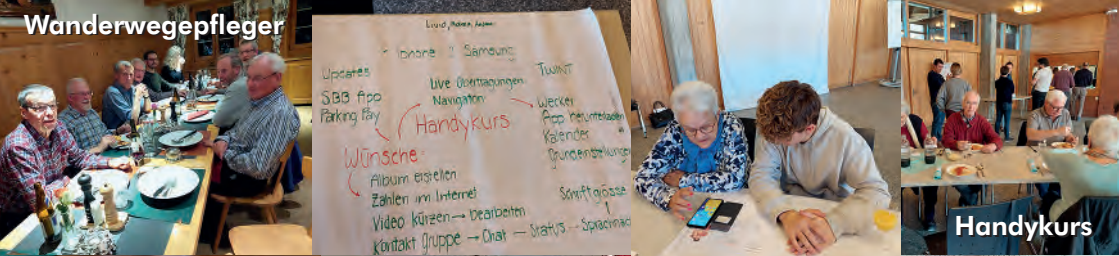 Wanderwegepfleger
Iphone Samsung
Updates
SBB App
Parking Pay
Live Übertragungen
Navigation
TWINT
Wecker
App herunterladen
Kalender
Grundeinstellungen
Handykurs
Wünsche
Album erstellen
Zahlen im Internet
Video kürzen → bearbeiten
Kontakt Gruppe → Chat – Status – Sprachnac
Schriftgrösse
Handykurs